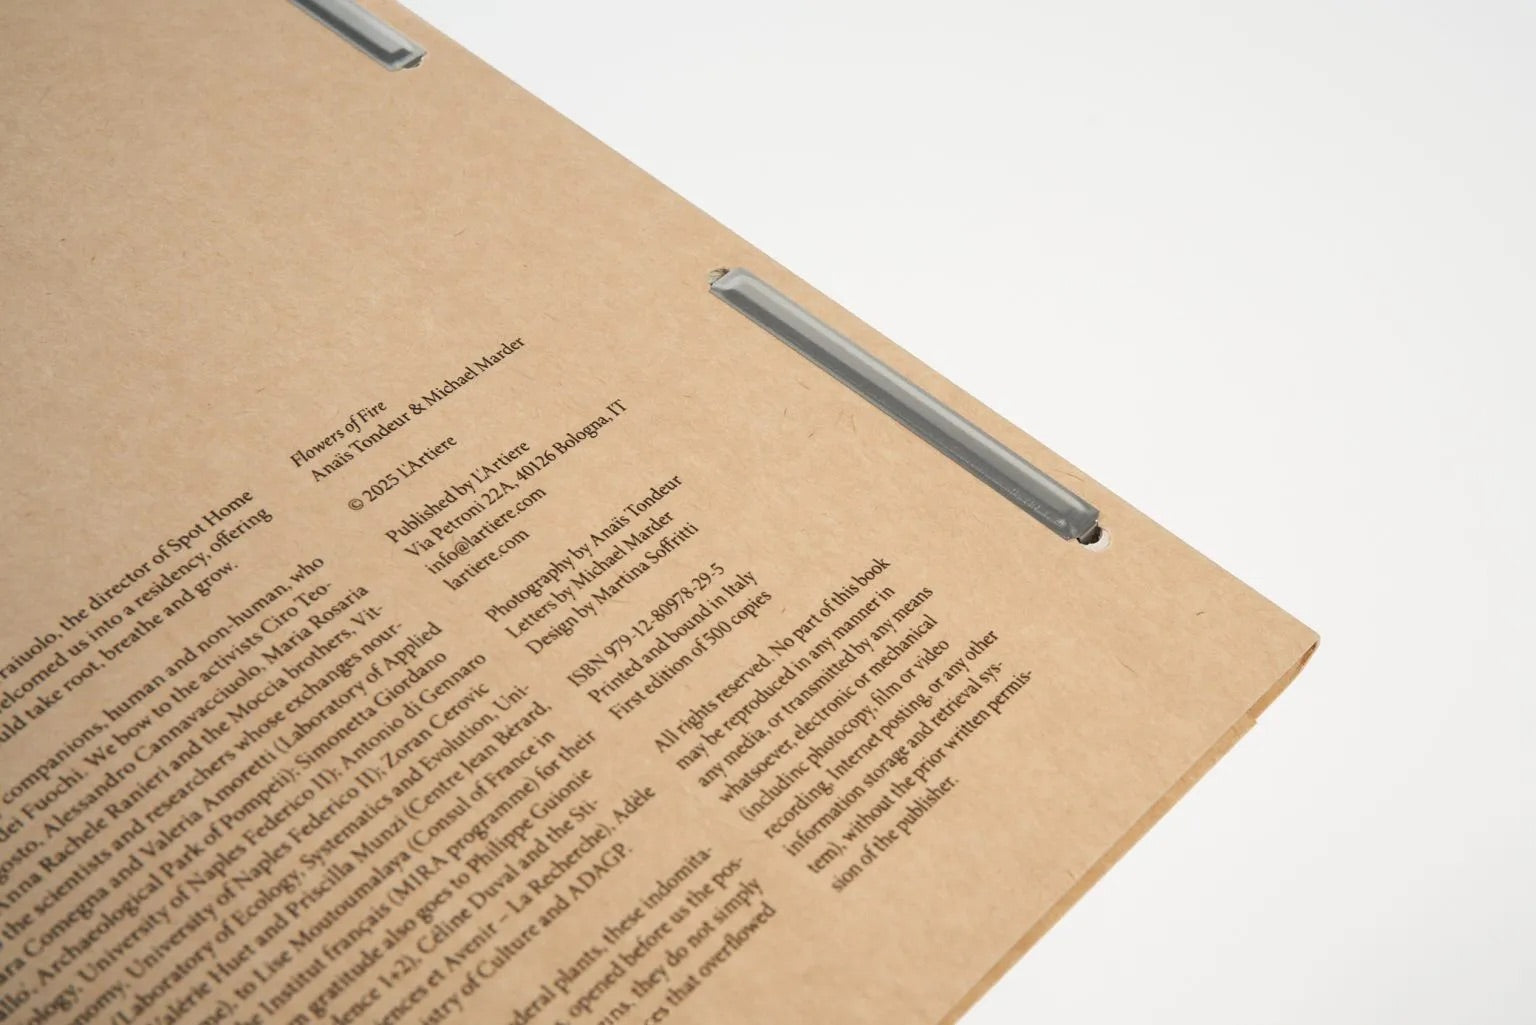 Flowers of Fire
Anaïs Tondeur & Michael Marder
© 2025 L'Artiere
Published by L'Artiere
Via Petroni 22A, 40126 Bologna, IT
info@lartiere.com
lartiere.com
Photography by Anaïs Tondeur
Letters by Michael Marder
Design by Martina Soffritti
ISBN 979-12-80978-29-5
Printed and bound in Italy
First edition of 500 copies
All rights reserved. No part of this book
may be reproduced in any manner in
any media, or transmitted by any means
whatsoever, electronic or mechanical
(includinc photocopy, film or video
recording, Internet posting, or any other
information storage and retrieval sys-
tem), without the prior written permis-
sion of the publisher.
raiuolo, the director of Spot Home
elcomed us into a residency, offering
uld take root, breathe and grow.
companions, human and non-human, who
dei Fuochi. We bow to the activists Ciro Teo-
gosto, Alessandro Cannavacciuolo, Maria Rosaria
Anna Rachele Ranieri and the Moccia brothers, Vit-
the scientists and researchers whose exchanges nour-
ara Comegna and Valeria Amoretti (Laboratory of Applied
Archaeological Park of Pompeii); Simonetta Giordano
ology, University of Naples Federico II); Antonio di Gennaro
onomy, University of Naples Federico II); Zoran Cerovic
(Laboratory of Ecology, Systematics and Evolution, Uni-
Valérie Huet and Priscilla Munzi (Centre Jean Bérard,
me), to Lise Moutoumalaya (Consul of France in
e Institut français (MIRA programme) for their
m gratitude also goes to Philippe Guionie
dence 1+2), Céline Duval and the Sti-
iences et Avenir – La Recherche), Adèle
istry of Culture and ADAGP.
deral plants, these indomita-
opened before us the pos-
uns, they do not simply
ces that overflowed